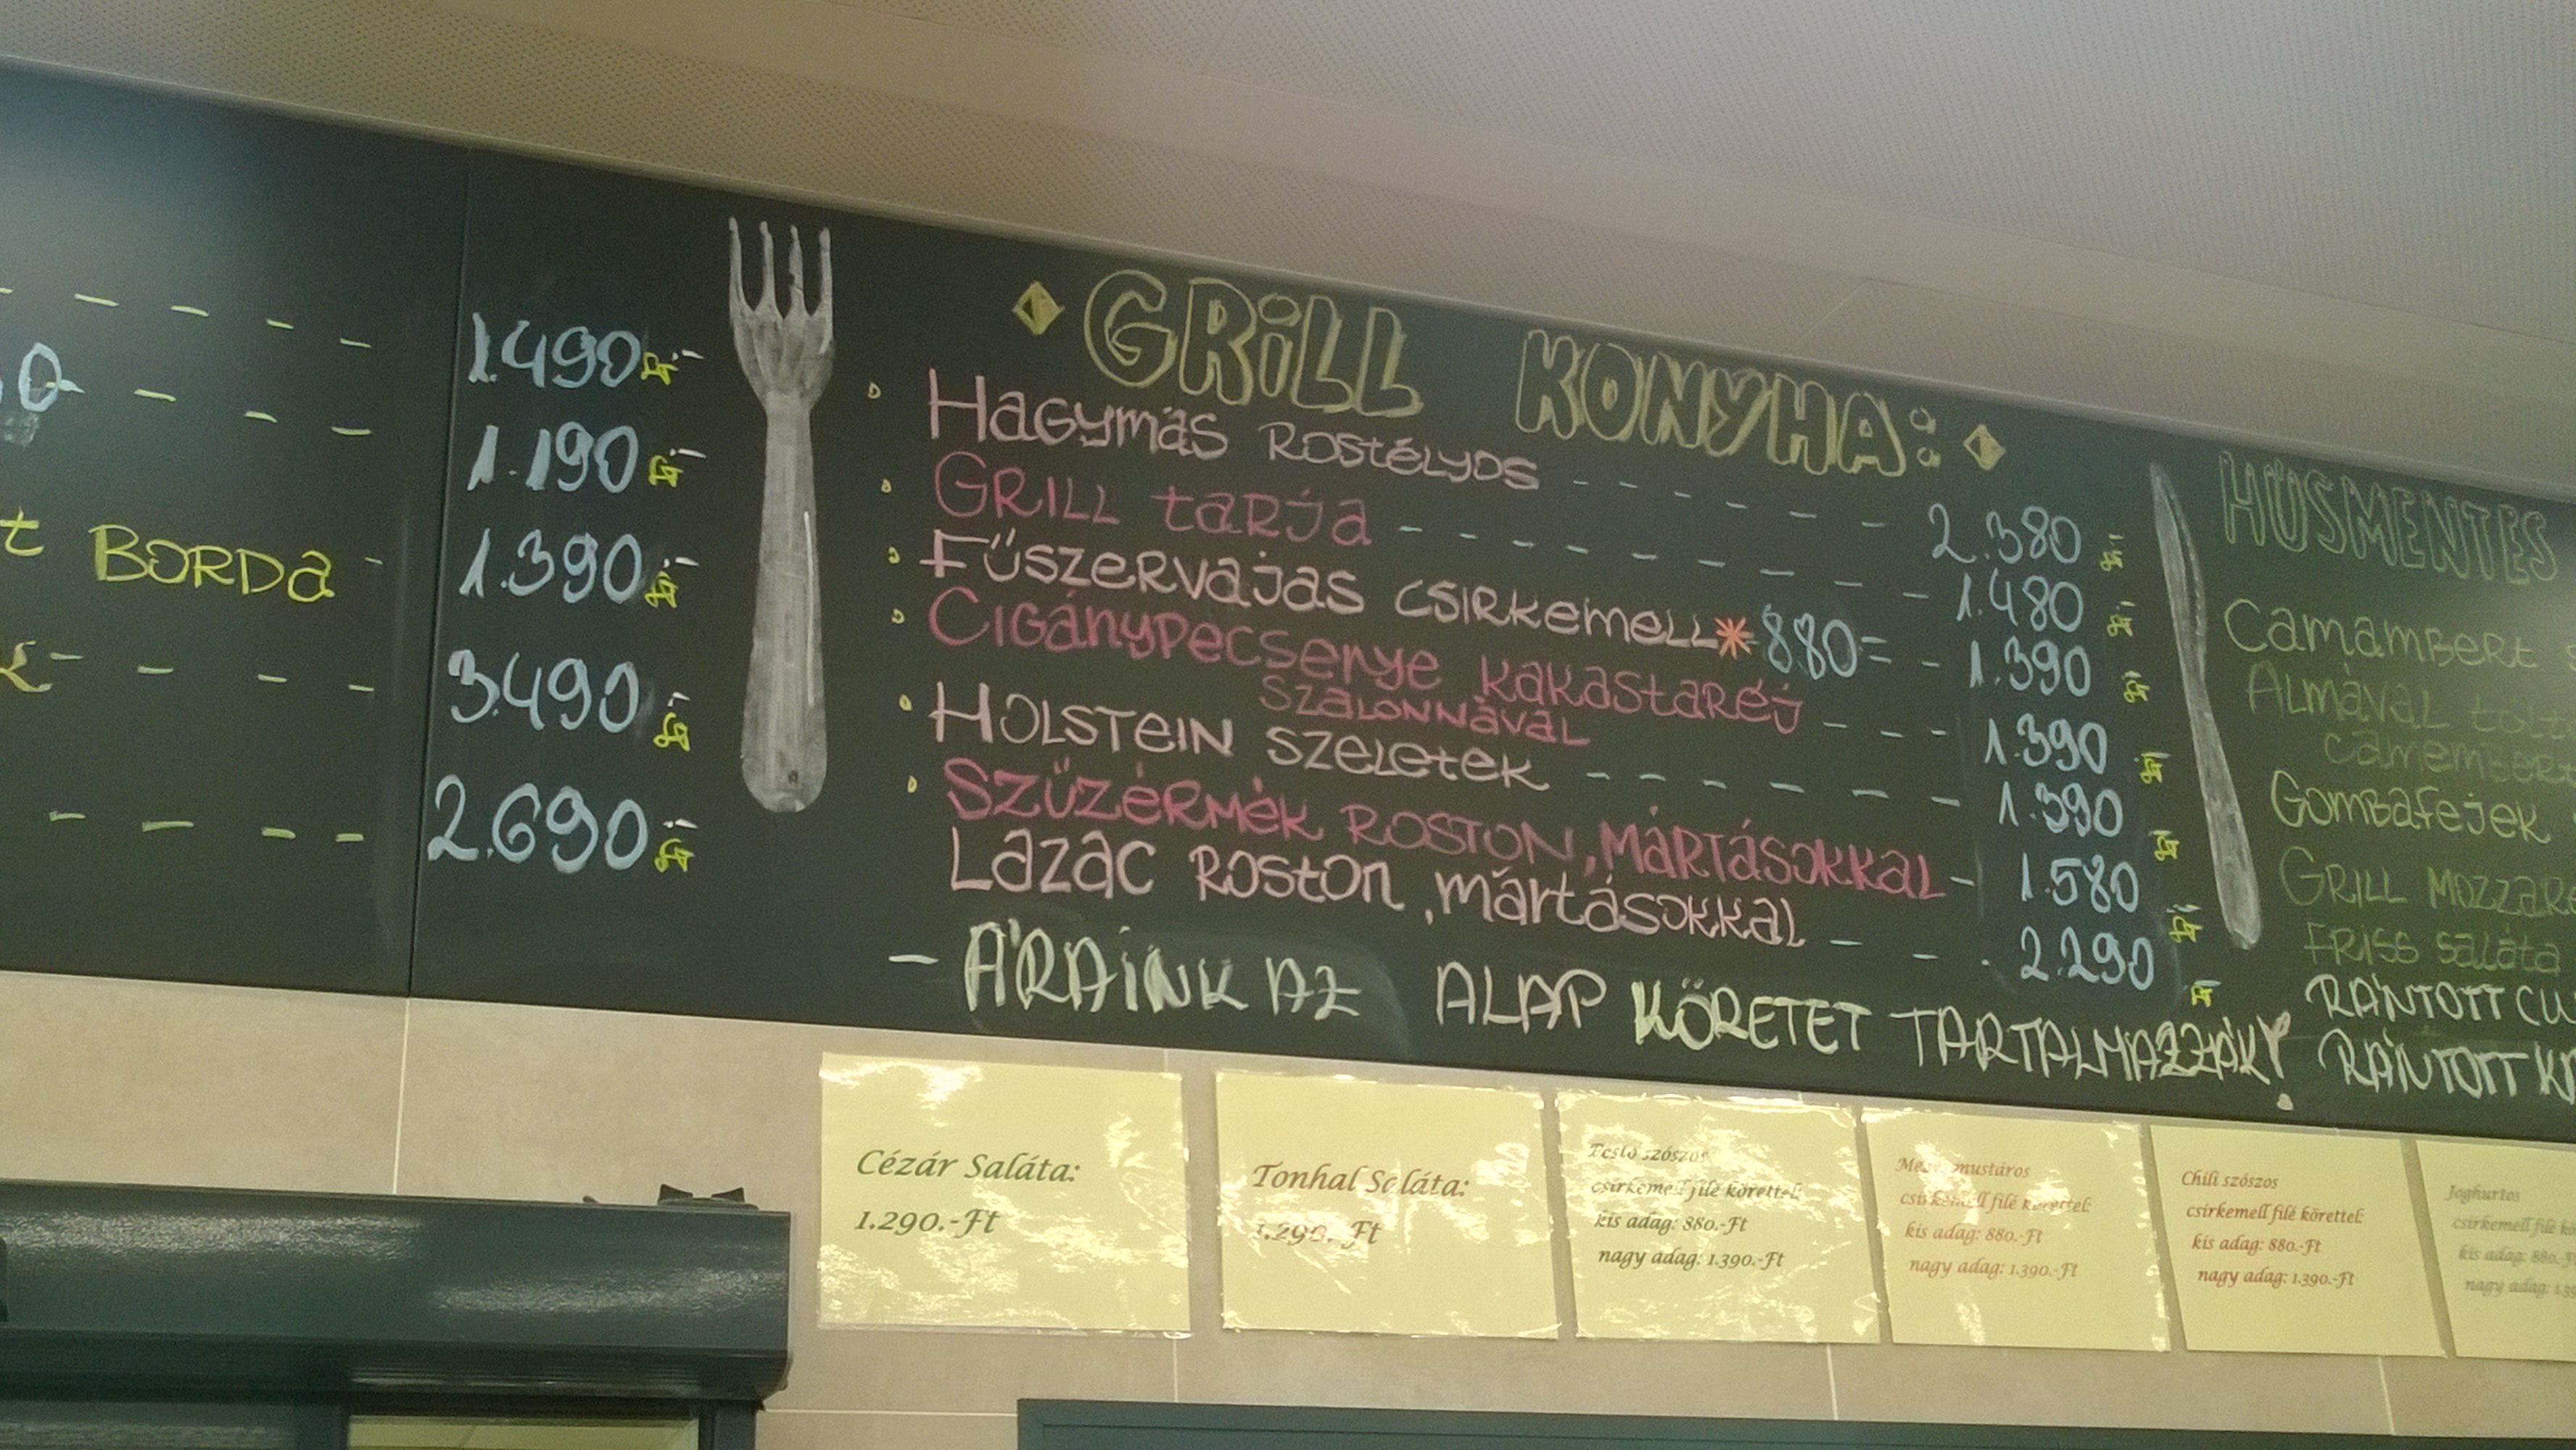 1.490 Ft.-
1.190 Ft.-
BORDA - 1.390 Ft.-
3.490 Ft.-
2.690 Ft.-
GRILL KONYHA:
Hagymás Rostélyos - - - - - - 2.380 Ft.-
GRILL tarja - - - - - - - - 1.480 Ft.-
Fűszervajas csirkemell* 880= - - 1.390 Ft.-
Cigánypecsenye kakastaréj - - - 1.390 Ft.-
szalonnával
Holstein szeletek - - - - - - 1.390 Ft.-
Szűzérmék ROSTON, MÁRTÁSOKKAL - 1.580 Ft.-
Lazac Roston, mártásokkal - - - 2.290 Ft.-
- ÁRAINK AZ ALAP KÖRETET TARTALMAZZÁK!
HÚSMENTES
Camambert
Almával
camembert
Gombafejek
GRILL
FRISS saláta
RÁNTOTT
RÁNTOTT
Cézár Saláta:
1.290.-Ft
Tonhal Saláta:
1.290.-Ft
szószos
csirkemell filé körettel:
kis adag: 880.-Ft
nagy adag: 1.390.-Ft
mustáros
csirkemell filé körettel:
kis adag: 880.-Ft
nagy adag: 1.390.-Ft
Chili szószos
csirkemell filé körettel:
kis adag: 880.-Ft
nagy adag: 1.390.-Ft
Joghurtos
csirkemell filé
kis adag: 880.-F
nagy adag: